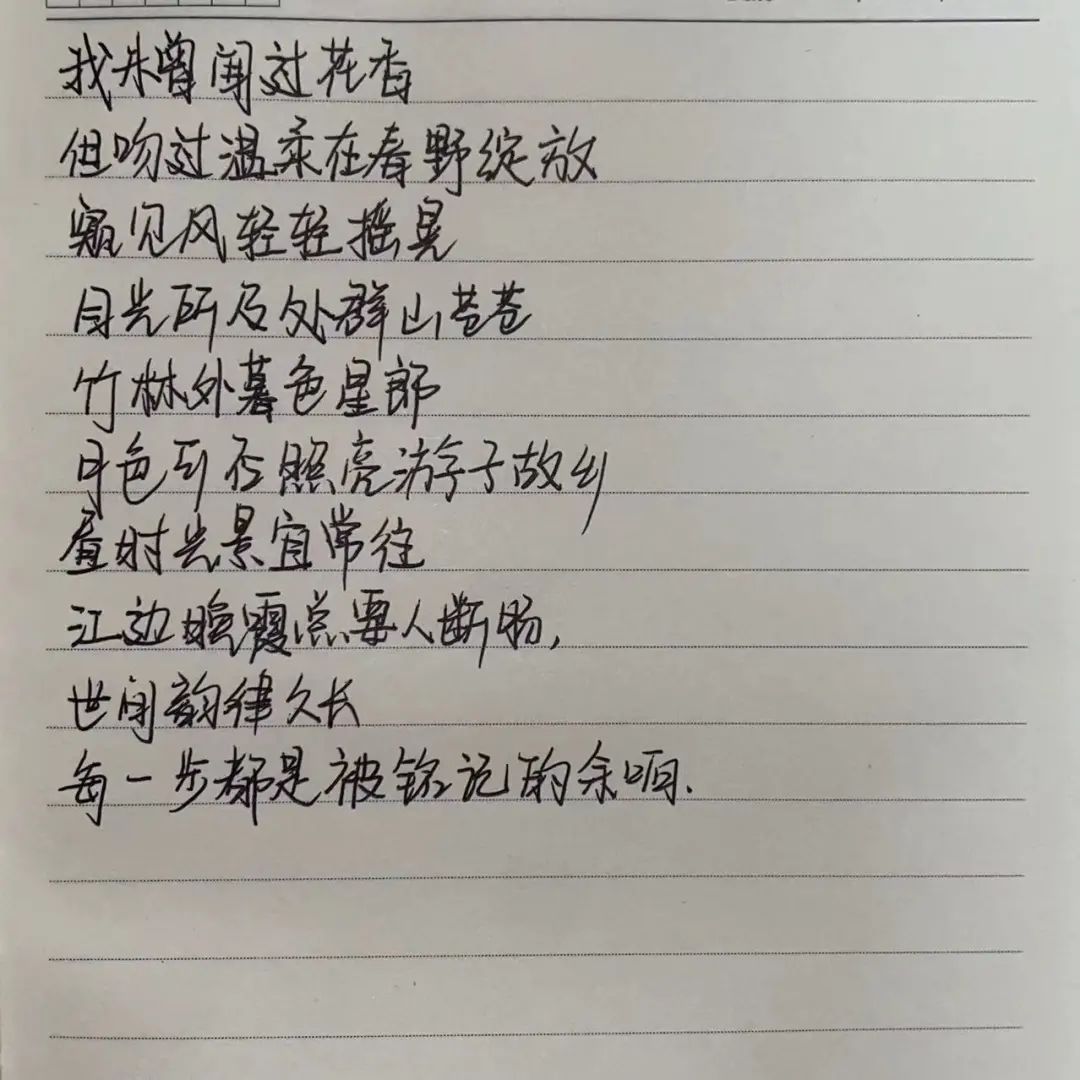 我未曾闻过花香
但吻过温柔在春野绽放
窥见风轻轻摇晃
目光所及处群山苍苍
竹林外暮色星郎
月色可否照亮游子故乡
看时光景宜常往
江边晚霞总要人断肠,
世间韵律久长
每一步都是被铭记的余响.